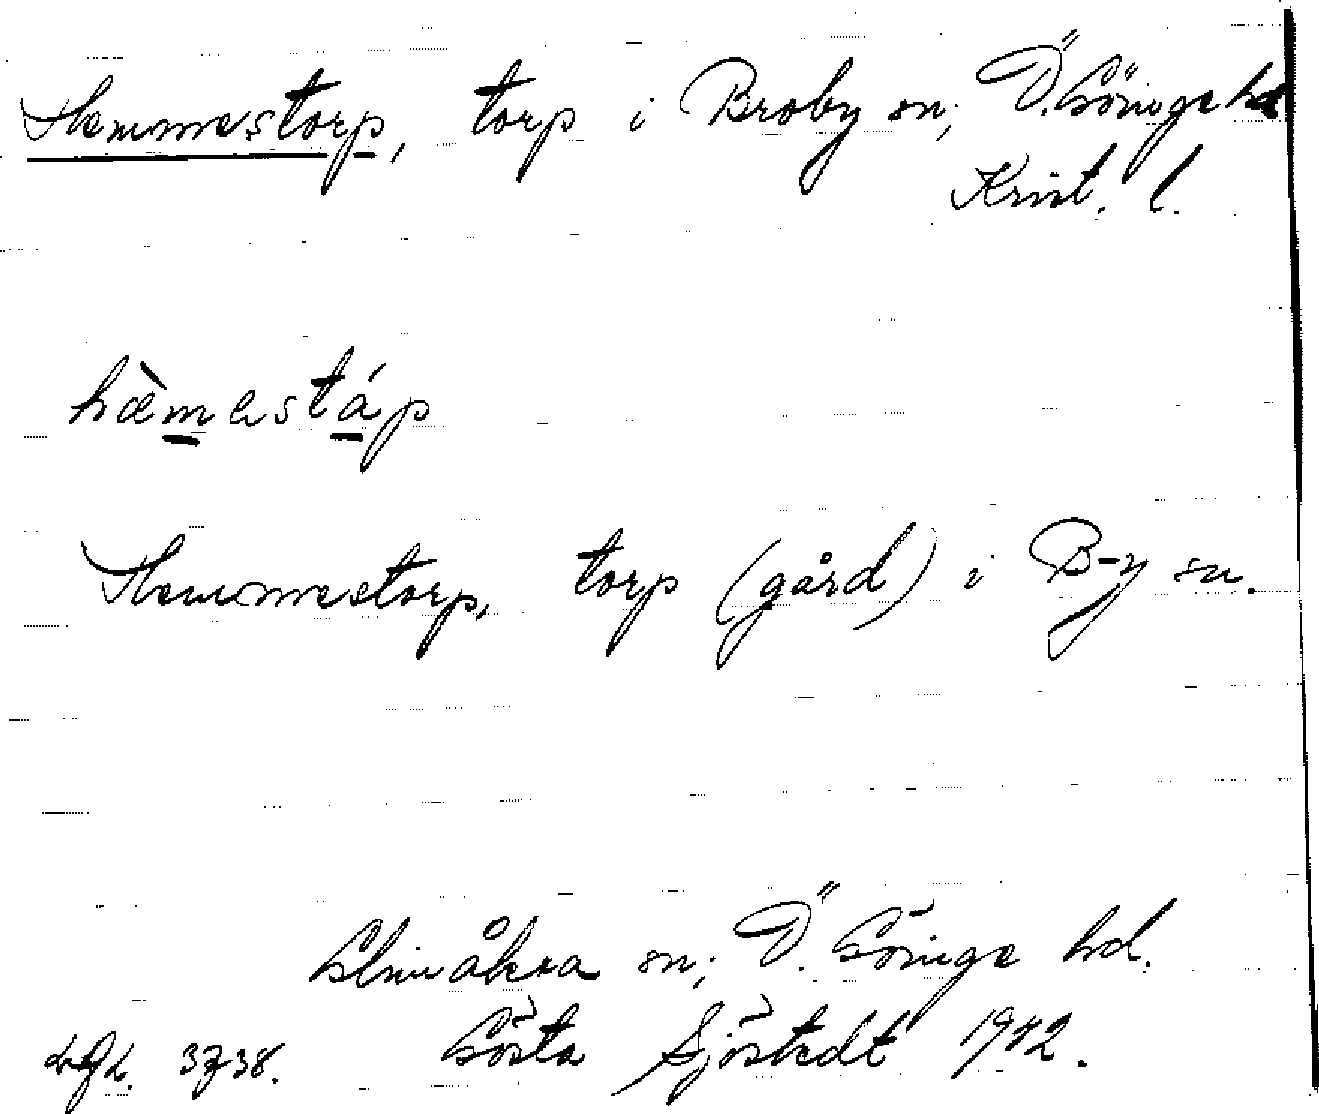 Hemmestorp, torp i Broby sn, Ö. Göinge hd
Krist. l.
hæ̀mestáp
Hemmestorp, torp (gård) i B-y sn.
Glimåkra sn, Ö. Göinge hd.
Gösta Sjöstedt 1942.
3738.